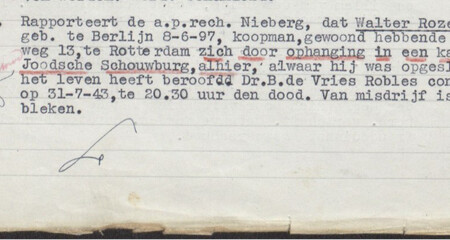 Rapporteert de a.p.rech. Nieberg, dat Walter Roze
geb. te Berlijn 8-6-97, koopman, gewoond hebbende
weg 13,te Rotterdam zich door ophanging in een ka
Joodsche Schouwburg,alhier, alwaar hij was opgesl
het leven heeft beroofd Dr.B.de Vries Robles con
op 31-7-43,te 20.30 uur den dood. Van misdrijf is
bleken.